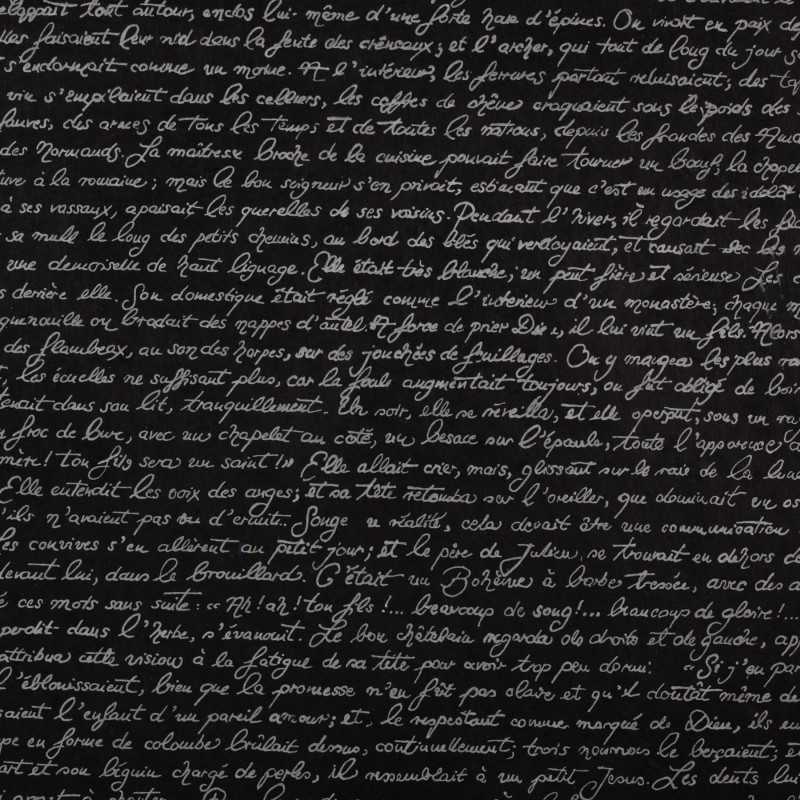 tout autour, enclos lui-même d'une forte haie d'épines. On vivait en paix de
faisaient leur nid dans la fente des créneaux; et l'archer, qui tout le long du jour
s'endormait comme un moine. A l'intérieur, les ferrures partout reluisaient; des
vin s'empilaient dans les celliers, les coffres de chêne craquaient sous le poids des
fauves, des armes de tous les temps et de toutes les nations, depuis les frondes des
des Normands. La maîtresse broche de la cuisine pouvait faire tourner un bœuf; la chapel
à la romaine; mais le bon seigneur s'en privait, estimant que c'est un usage des idolâ
à ses vassaux, apaisait les querelles de ses voisins. Pendant l'hiver, il regardait les
sa mule le long des petits chemins, au bord des blés qui verdoyaient, et causait avec les
une demoiselle de haut lignage. Elle était très blanche, un peu fière et sérieuse. Les
derrière elle. Son domestique était réglé comme l'intérieur d'un monastère; chaque
quenouille ou brodait des nappes d'autel. A force de prier Dieu, il lui vint un fils. Alors
des flambeaux, au son des harpes, sur des jonchées de feuillages. On y mangea les plus
les écuelles ne suffisant plus, car la foule augmentait toujours, on fut obligé de boi
dans son lit, tranquillement. Un soir, elle se réveilla, et elle aperçut, sous un
froc de bure, avec un chapelet au côté, un besace sur l'épaule, toute l'apparence
mère! ton fils sera un saint!» Elle allait crier, mais, glissant sur le raie de la lune
Elle entendit les voix des anges; et sa tête retomba sur l'oreiller, que dominait un os
'ils n'avaient pas vu d'ermite. Songe u réalité, cela devait être une communication
les convives s'en allèrent au petit jour; et le père de Julien se trouvait en dehors
devant lui, dans le brouillard. C'était un Bohême à barbe tressée, avec des
ces mots sans suite: « Ah! ah! ton fils!... beaucoup de sang!... beaucoup de gloire!...
perdit dans l'herbe, s'évanouit. Le bon châtelain regarda de droite et de gauche, app
attribua cette vision à la fatigue de sa tête pour avoir trop peu dormi: « Si j'en par
l'éblouissaient, bien que la promesse n'en fût pas claire et qu'il doutât même de
l'enfant d'un pareil amour; et, le respectant comme marqué de Dieu, ils eu
en forme de colombe brûlait dessus, continuellement; trois nourrices le berçaient; e
et son béguin chargé de perles, il ressemblait à un petit Jesus. Les dents lui